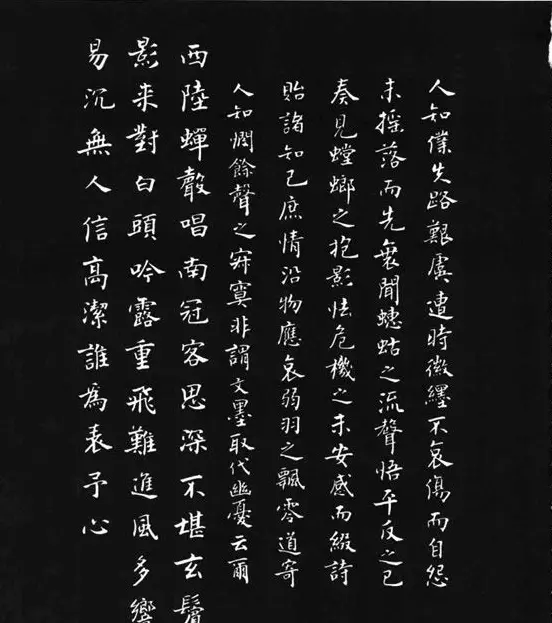 人知僕失路艱虞遭時徽纆不哀傷而自怨
未搖落而先衰聞蟪蛄之流聲悟平反之已
奏見螳螂之抱影怯危機之未安感而綴詩
貽諸知己庶情沿物應哀弱羽之飄零道寄
人知憫餘聲之寂寞非謂文墨取代幽憂云爾
西陸蟬聲唱南冠客思深不堪玄鬢
影来對白頭吟露重飛難進風多響
易沉無人信高潔誰為表予心